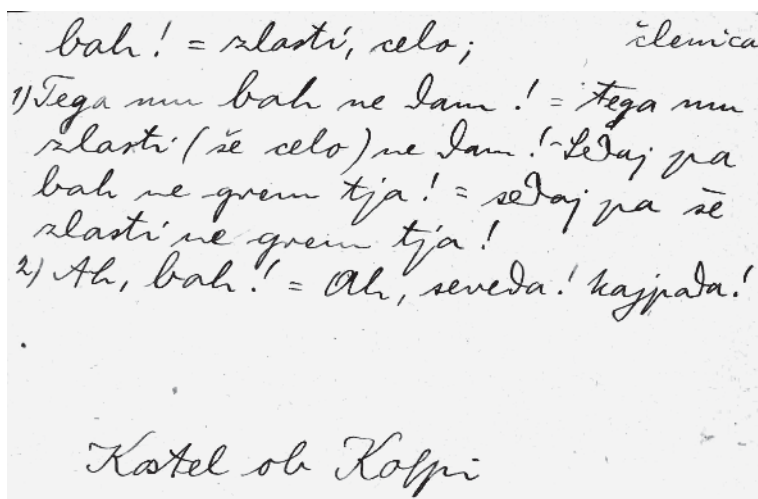 bah! = zlasti, celo; členica
1) Tega mu bah ne dam! = tega mu
zlasti (še celo) ne dam! - Sedaj pa
bah ne grem tja! = sedaj pa še
zlasti ne grem tja!
2) Ah, bah! = Ah, seveda! kajpada!
Kostel ob Kolpi